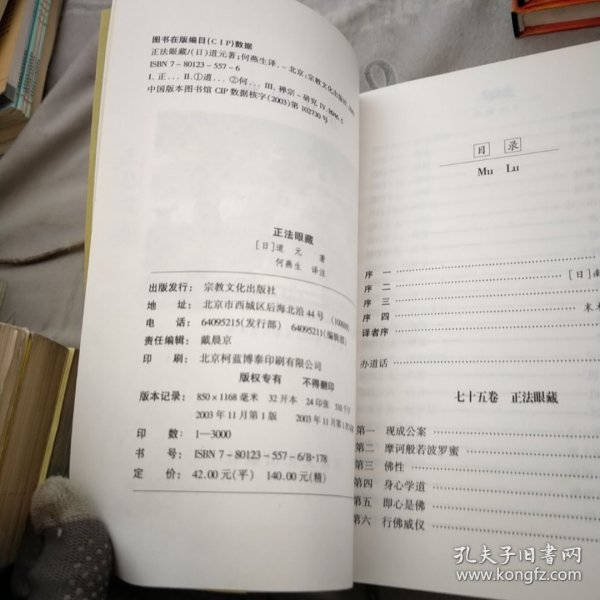 图书在版编目(CIP)数据
正法眼藏/(日)道元著;何燕生译.-北京:宗教文化出版社
ISBN 7-80123-557-6
Ⅰ.正… Ⅱ.①道… ②何… Ⅲ.禅宗-研究 Ⅳ.B946.5
中国版本图书馆CIP数据核字(2003)第102730号
正法眼藏
[日]道 元 著
何燕生 译注
出版发行: 宗教文化出版社
地 址: 北京市西城区后海北沿44号 (100009)
电 话: 64095215(发行部) 64095211(编辑部)
责任编辑: 戴晨京
印 刷: 北京柯蓝博泰印刷有限公司
版权专有 不得翻印
版本记录: 850×1168毫米 32开本 24印张 510千字
2003年11月第1版 2003年11月第1
印 数: 1—3000
书 号: ISBN 7-80123-557-6/B·178
定 价: 42.00元(平) 140.00元(精)
目 录
Mu Lu
序 一
序 二 [日]
序 三
序 四 末木
译者序
办道话
七十五卷 正法眼藏
第一 现成公案
第二 摩诃般若波罗蜜
第三 佛性
第四 身心学道
第五 即心是佛
第六 行佛威仪
孔夫子旧书网
www.kongfz.com